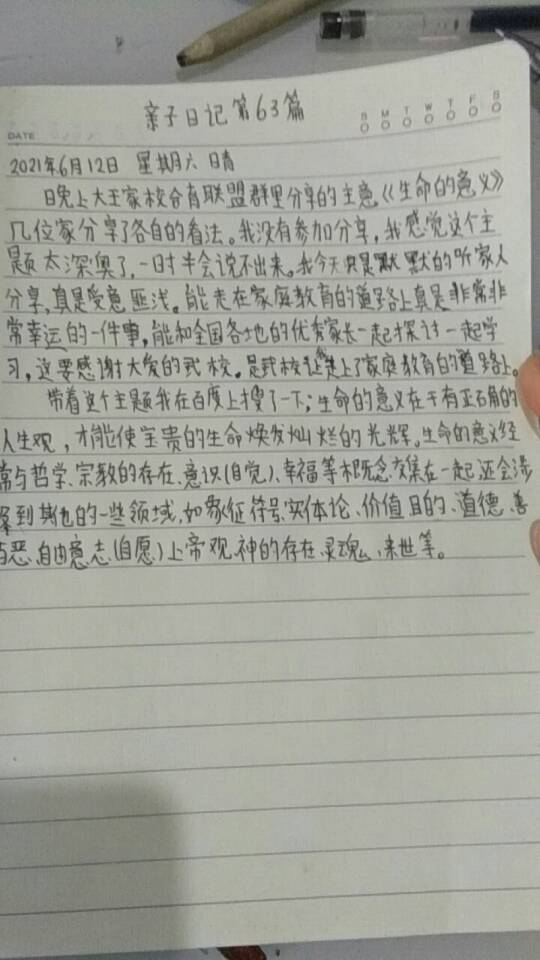 亲子日记第63篇
S M T W T F S
DATE
2021年6月12日 星期六 晴
晚上大王家校合育联盟群里分享的主意《生命的意义》
几位家分享了各自的看法。我没有参加分享，我感觉这个主
题太深奥了，一时半会说不出来。我今天只是默默的听家人
分享，真是受意匪浅。能走在家庭教育的道路上真是非常非
常幸运的一件事，能和全国各地的优秀家长一起探讨一起学
习，这要感谢大爱的武校。是武校让我走上了家庭教育的道路上。
带着这个主题我在百度上搜了一下；生命的意义在于有正确的
人生观，才能使宝贵的生命焕发灿烂的光辉。生命的意义经
常与哲学、宗教的存在、意识(自觉)、幸福等概念交集在一起还会涉
到其他的一些领域，如象征符号、实体论、价值目的、道德、善
与恶、自由意志、(自愿)上帝观、神的存在、灵魂、来世等。